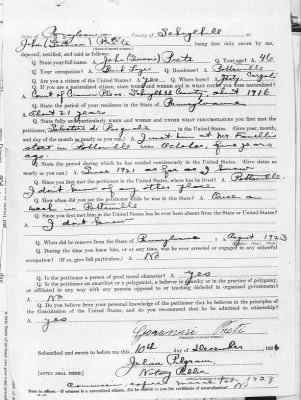 State of Pennsylvania County of Schuylkill ss:
John (Giovanni) Prete being first duly sworn by me,
deposed, testified, and said as follows:
Q. State your full name. A. John (Giovanni) Prete Q. Your age? A. 46
Q. Your occupation? A. Q. Residence? A. Pottsville
Q. Are you a citizen of the United States? A. Yes Q. Where born? A. Italy
Q. If you are a naturalized citizen, state WHEN and WHERE and in what court you were naturalized?
Court of Common Pleas Schuylkill County, 1916
Q. State the period of your residence in the State of Pennsylvania
A. About 21 years
Q. State fully and particularly WHEN and WHERE and UNDER WHAT CIRCUMSTANCES you first met the
petitioner, in the United States. Give year, month,
and day of the month as nearly as you can. A. I met him at my
store in Pottsville in October, five years
ago.
Q. State the period during which he has resided continuously in the United States. (Give dates as
nearly as you can.) A. Since 1921 as far as I know
Q. Since you first met the petitioner in the United States, where has he lived? A. Pottsville.
I don't know of any other place
Q. How often did you see the petitioner while he was in this State? A. Once a
week in Pottsville
Q. Since you first met him in the United States has he ever been absent from the United States?
A. I don't know
Q. When did he remove from the State of Pennsylvania? A. August 1923
Q. During the time you knew him, or at any time, was he ever arrested or engaged in any unlawful
occupation? (If so, give full particulars.) A. No
Q. Is the petitioner a person of good moral character? A. yes
Q. Is the petitioner an anarchist or a polygamist, a believer in anarchy or in the practice of polygamy,
or affiliated in any way with any persons opposed to or teaching disbelief in organized government?
A. No
Q. Do you believe from your personal knowledge of the petitioner that he believes in the principles of
the Constitution of the United States, and do you recommend that he be admitted to citizenship?
A. yes
Giovanni Prete
Subscribed and sworn to before me this 10th day of December 1926
John
[AFFIX SEAL HERE] Notary Public
Commission expires March 1st 1928